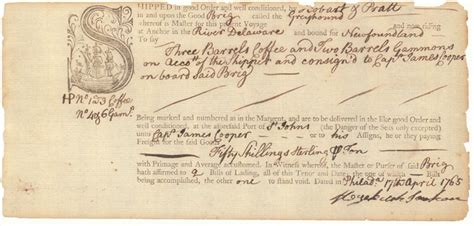 SHIPPED in good Order and well conditioned, by Hobart & Pratt
in and upon the good Brig Greyhound
whereof is Master for this present Voyage
at Anchor in the River Delaware and bound for Newfoundland
To say
Three Barrels Coffee and Two Barrels Gammons
on Accot. of the Shipper and consign'd to Capt. James Cooper
on board said Brig
HP No. 1a3 Coffee
No. 4a6 Gams.
Being marked and numbered as in the Margent, and are to be delivered in the like good Order and
well conditioned, at the aforesaid Port of St. Johns (the Danger of the Seas only excepted)
unto Capt. James Cooper or to his Assigns, he or they paying
Freight for the said Goods
Fifty Shillings Sterling P Ton
with Primage and Average accustomed. In Witness whereof, the Master or Purser of said Brig
hath affirmed to Bills of Lading, all of this Tenor and Date; the one of which Bills
being accomplished, the other one to stand void. Dated in Philada. 17th April 1765